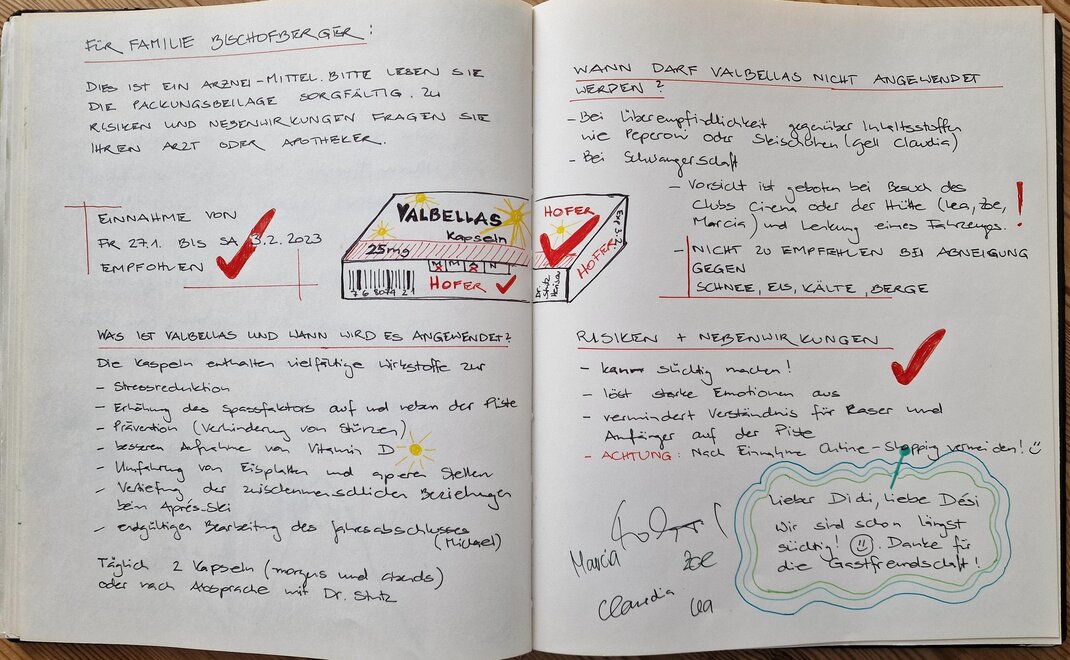 FÜR FAMILIE BISCHOFBERGER:
DIES IST EIN ARZNEI-MITTEL. BITTE LESEN SIE
DIE PACKUNGSBEILAGE SORGFÄLTIG. ZU
RISIKEN UND NEBENWIRKUNGEN FRAGEN SIE
IHREN ARZT ODER APOTHEKER.
EINNAHME VON
FR 27.1. BIS SA 3.2.2023
EMPFOHLEN
VALBELLAS
Kapseln
25mg
HOFER
7680421
HOFER
HOFER
Exp 3.2.
Dr.
Stutz
WAS IST VALBELLAS UND WANN WIRD ES ANGEWENDET?
Die Kaspeln enthalten vielfältige Wirkstoffe zur
- Stressreduktion
- Erhöhung des Spassfaktors auf und neben der Piste
- Prävention (Verhinderung von Stürzen)
- besseren Aufnahme von Vitamin D
- Umfahrung von Eisplatten und aperen Stellen
- Vertiefung der zwischenmenschlichen Beziehungen
beim Après-Ski
- endgültigen Bearbeitung des Jahresabschlusses
(Michael)
Täglich 2 Kapseln (morgens und abends)
oder nach Absprache mit Dr. Stutz
WANN DARF VALBELLAS NICHT ANGEWENDET
WERDEN?
- Bei Überempfindlichkeit gegenüber Inhaltsstoffen
wie Peperoni oder Skischuhen (gell Claudia)
- Bei Schwangerschaft
- Vorsicht ist geboten bei Besuch des
Clubs Cinema oder der Hütte (Lea, Zoe,
Marcia) und Lenkung eines Fahrzeuges.
- NICHT ZU EMPFEHLEN BEI ABNEIGUNG
GEGEN
SCHNEE, EIS, KÄLTE, BERGE
RISIKEN + NEBENWIRKUNGEN
- kann süchtig machen!
- löst starke Emotionen aus
- vermindert Verständnis für Raser und
Anfänger auf der Piste
- ACHTUNG: Nach Einnahme Online-Shopping vermeiden!
Lieber Didi, liebe Dési
Wir sind schon längst
süchtig! Danke für
die Gastfreundschaft!
Marcia
Zoe
Claudia
Lea